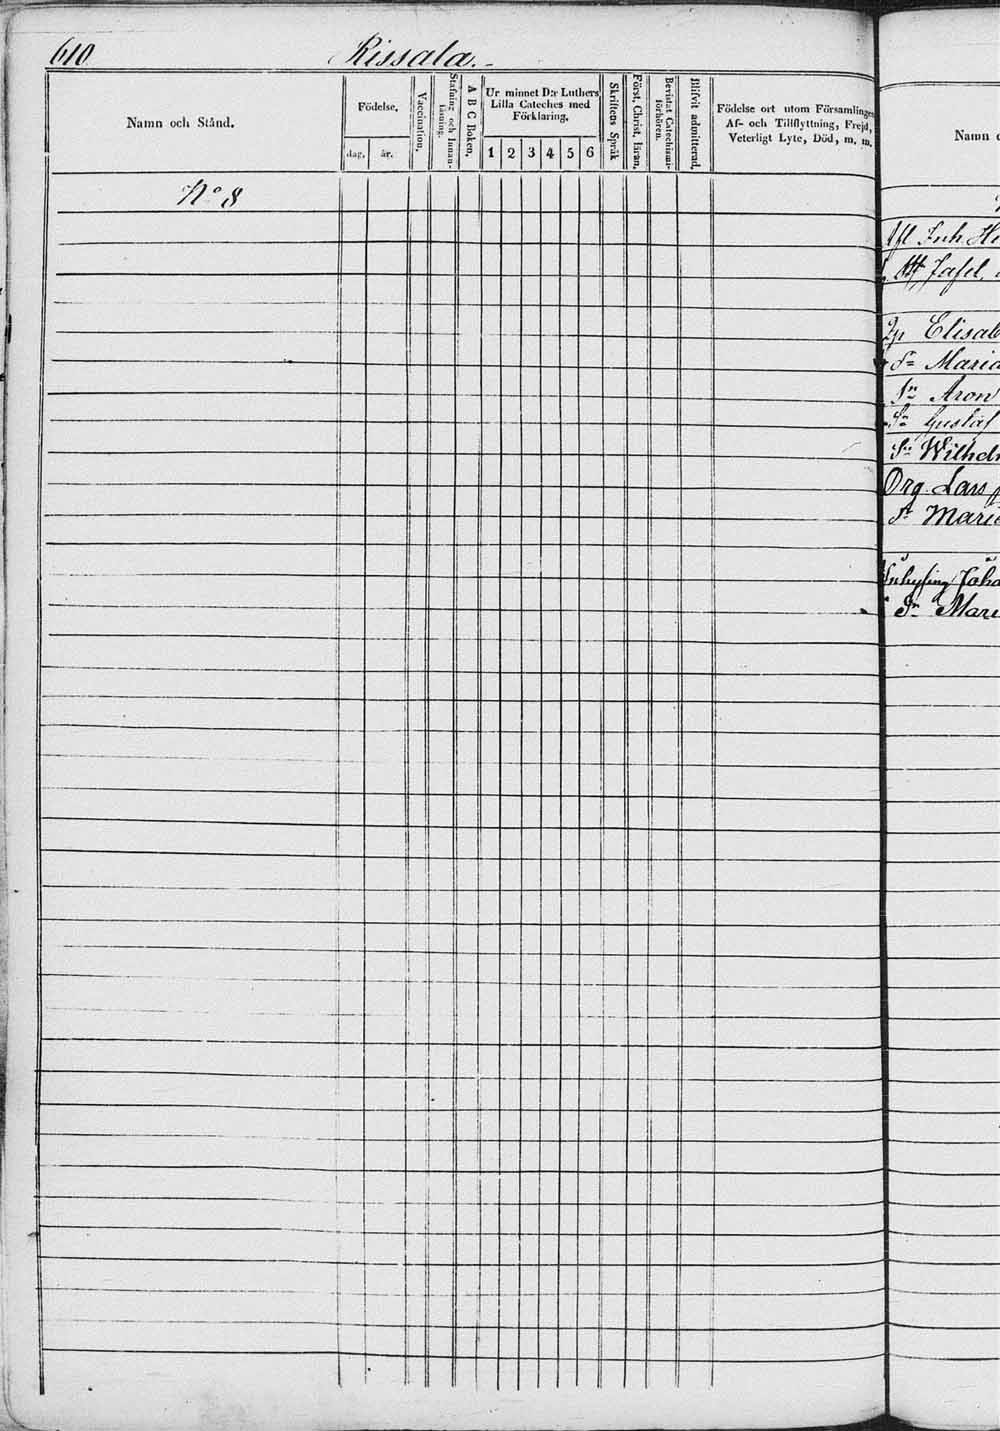 610 Rissala.
Namn och Stånd.
Födelse,
dag,
år.
Vaccination.
Stafning och Innan-
läsning.
A B C Boken.
Ur minnet D:r Luthers
Lilla Cateches med
Förklaring,
1 2 3 4 5 6
Skriftens Språk
Först. Christ. läran.
Bevistat Catechismi-
förhören.
Blifvit admitterad.
Födelse ort utom Församlingen
Af- och Tillflyttning, Frejd,
Veterligt Lyte, Död, m. m.
No 8
Namn
Inh.
Elisab
Maria
Aron
Gustaf
Wilhelm
Lars
Maria
Inhysing Joha
Mari